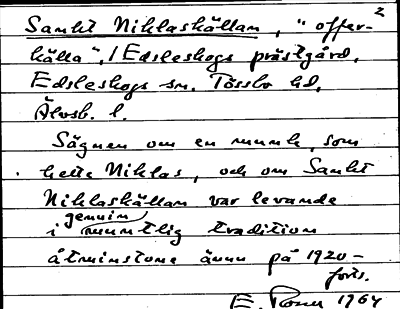 2
Sankt Niklaskällan, "offer-
källa", / Edsleskogs prästgård,
Edsleskogs sn. Tössbo hd,
Älvsb. l.
Sägnen om en munk, som
hette Niklas, och om Sankt
Niklaskällan var levande
genuin
i muntlig tradition
åtminstone ännu på 1920-
forts.
E. 1964